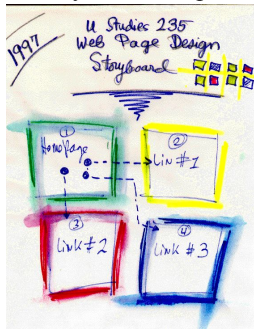 1997
U Studies 235
Web Page Design
Storyboard
1
HomePage
2
Link #1
3
Link #2
4
Link #3